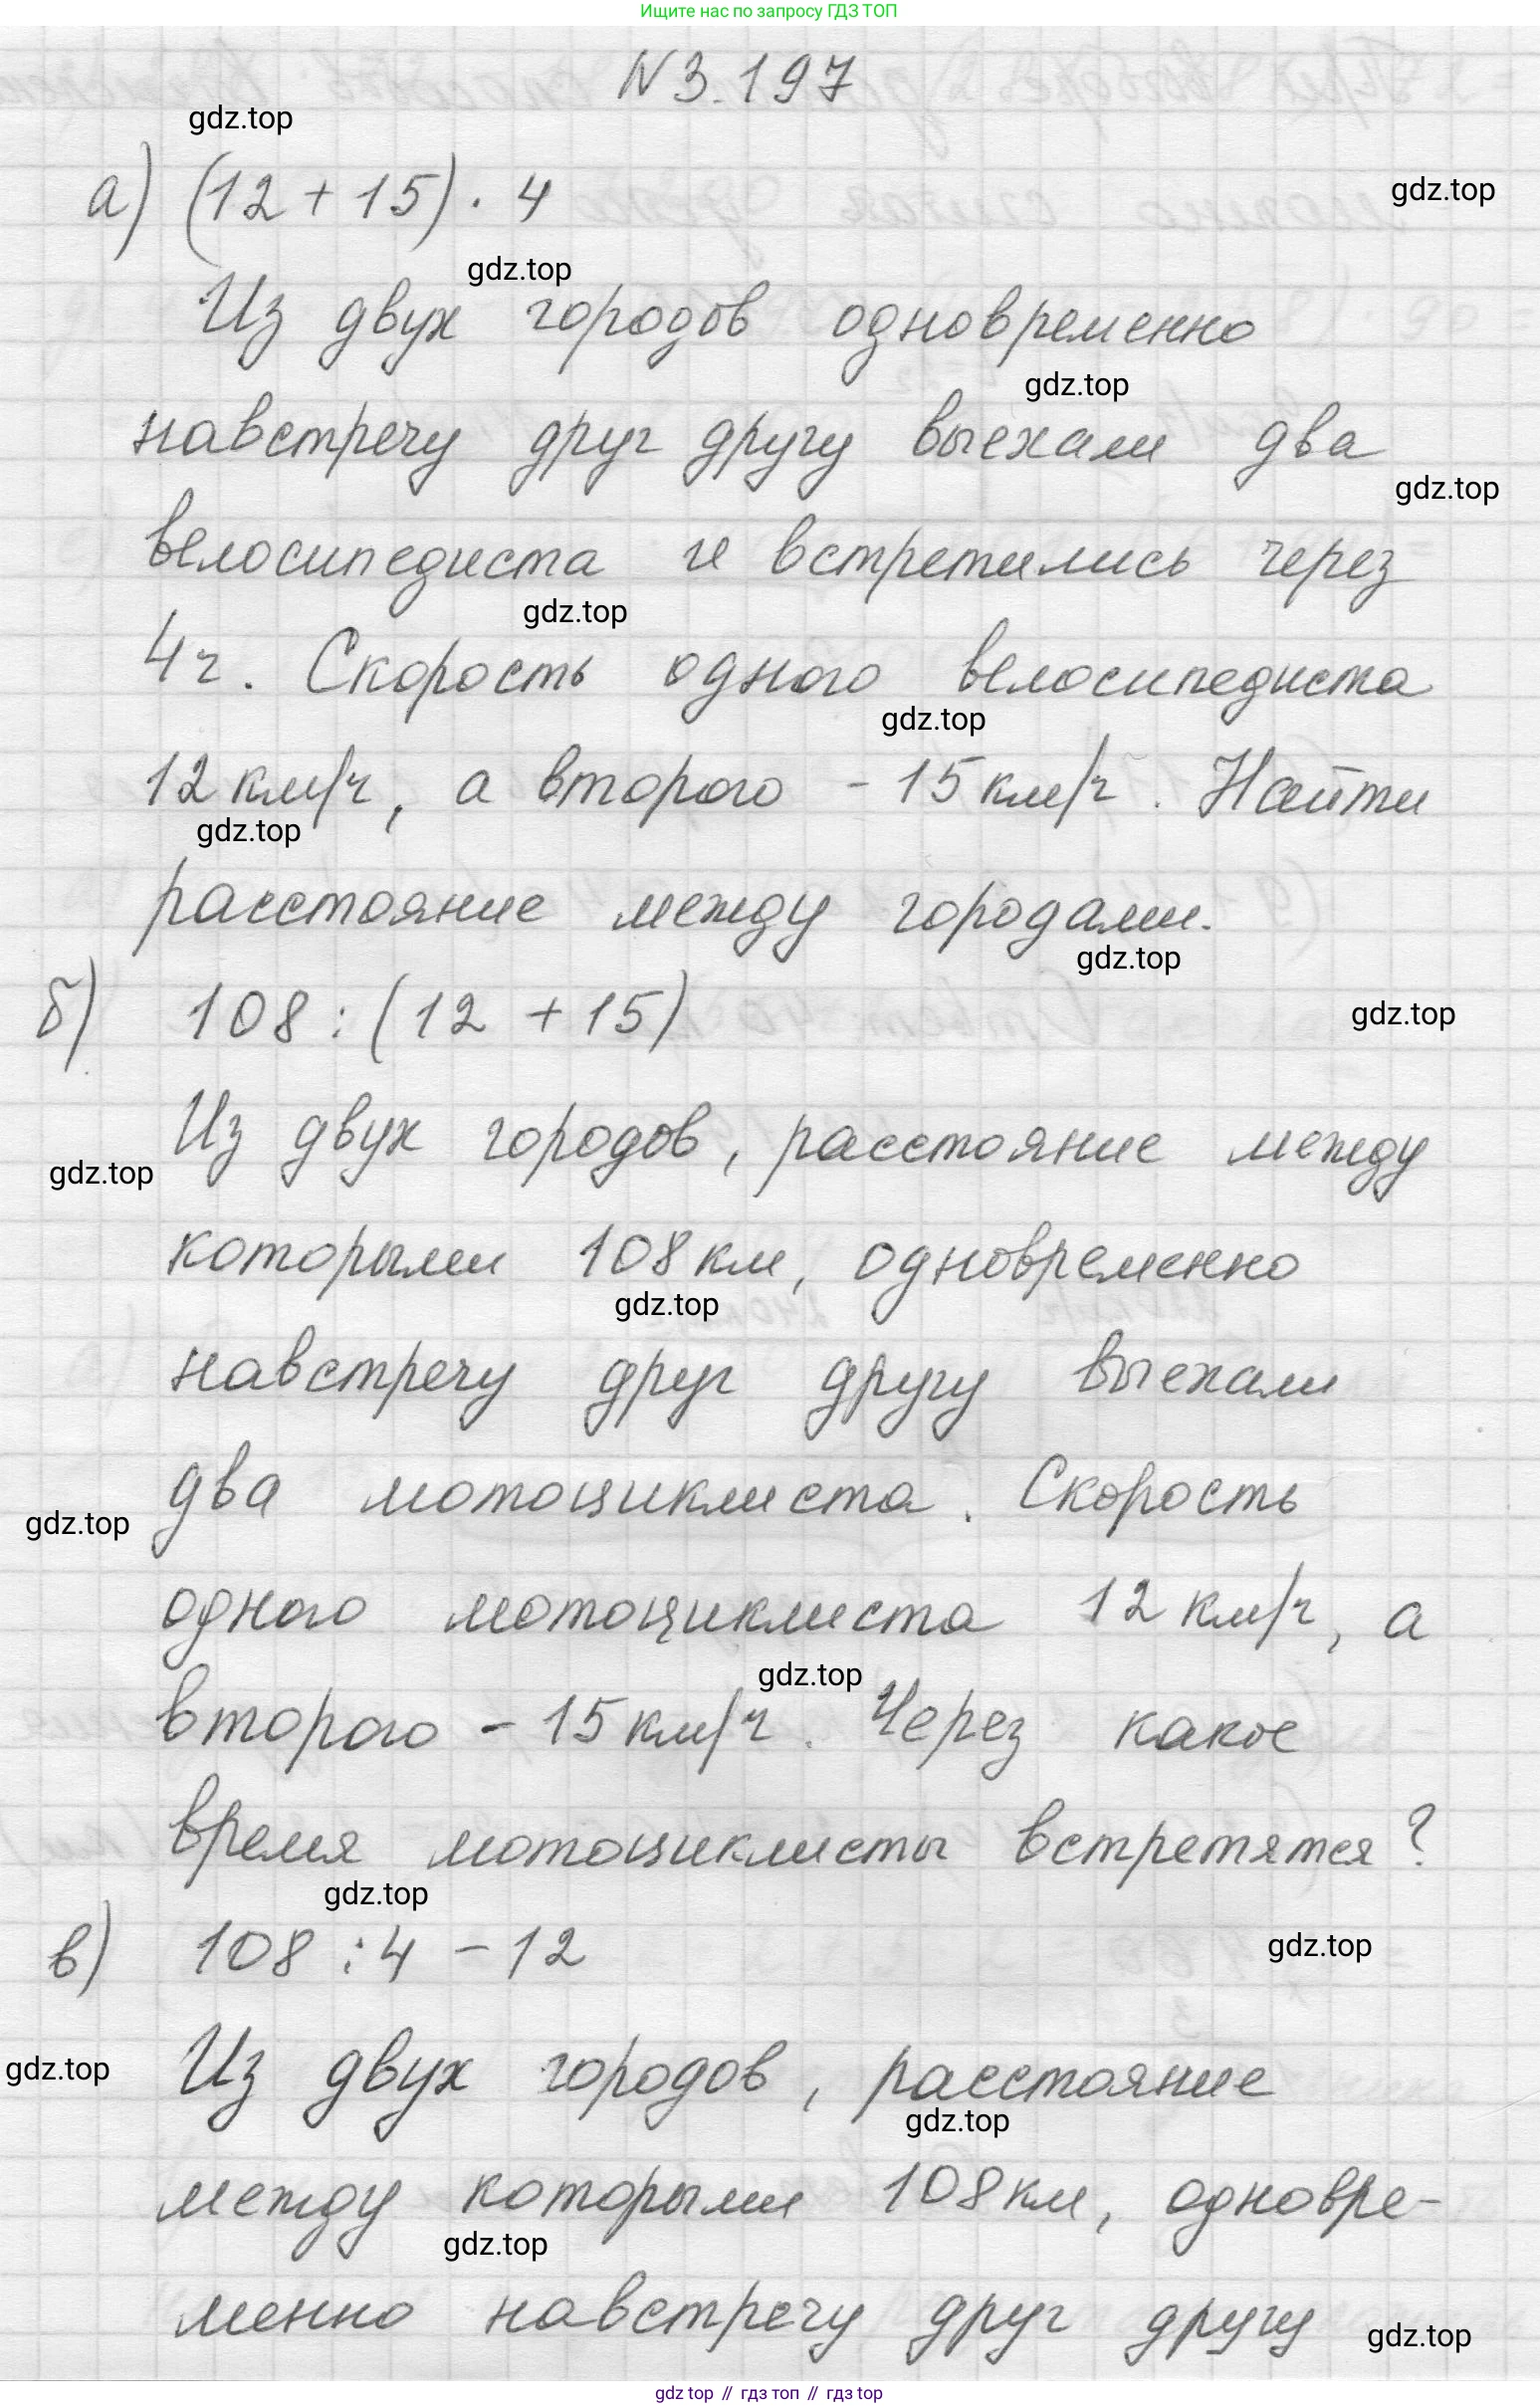 Ищите нас по запросу ГДЗ ТОП
N 3.197
gdz.top
а) (12 + 15) · 4
gdz.top
gdz.top
Из двух городов одновременно
gdz.top
навстречу друг другу выехали два
gdz.top
велосипедиста и встретились через
gdz.top
4ч. Скорость одного велосипедиста
gdz.top
12 км/ч, а второго - 15 км/ч. Найти
gdz.top
расстояние между городами.
gdz.top
б) 108 : (12 + 15)
gdz.top
Из двух городов, расстояние между
gdz.top
которыми 108 км, одновременно
gdz.top
навстречу друг другу выехали
два мотоциклиста. Скорость
gdz.top
одного мотоциклиста 12 км/ч, а
gdz.top
второго - 15 км/ч. Через какое
время мотоциклисты встретятся?
gdz.top
в) 108 : 4 - 12
gdz.top
Из двух городов, расстояние
gdz.top
gdz.top
между которыми 108 км, одновре-
gdz.top
менно навстречу друг другу
gdz.top
gdz top // гдз топ // гдз top